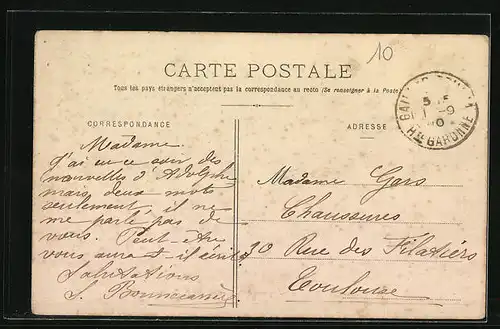 10
CARTE POSTALE
Tous les pays étrangers n'acceptent pas la correspondance au recto (Se renseigner à la Poste)
CORRESPONDANCE
Madame.
J'ai eu ce soir des
nouvelles d'Adolphe
mais, deux mots
seulement, il ne
me parle pas de
vous. Peut-être
vous aura-t-il écrit
Salutations
S.
ADRESSE
Madame Gars
Chaussures
30 Rue des Filatiers
Toulouse
Hte GARONNE